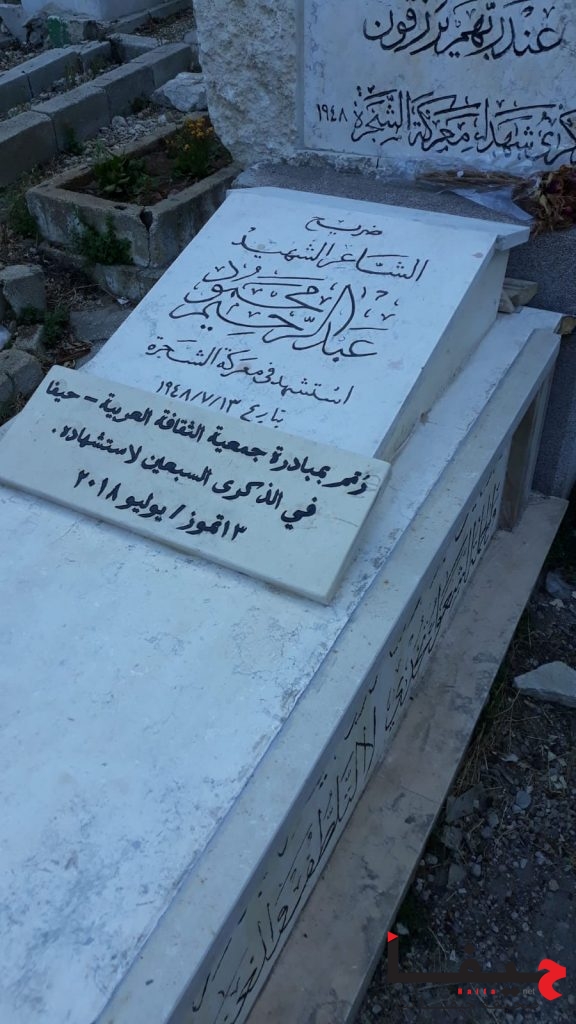 عند ربهم يرزقون
شهداء معركة الشجرة ١٩٤٨
ضريح
الشاعر الشهيد
عبد الرحيم محمود
استشهد في معركة الشجرة
بتاريخ ١٩٤٨/٧/١٣
رُمّم بمبادرة جمعية الثقافة العربية - حيفا
في الذكرى السبعين لاستشهاده.
١٣ تموز / يوليو ٢٠١٨
حيفا
Haifa
net